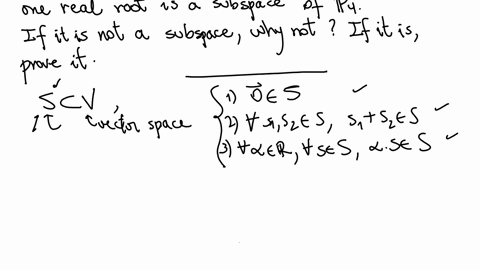 one real root is a subspace of P₄.
If it is not a subspace, why not? If it is,
prove it.
S⊂V,
vector space
1) 0⃗ ∈ S ✓
2) ∀ s₁,s₂∈S, s₁+s₂∈S ✓
3) ∀α∈ℝ, ∀s∈S, α.s∈S ✓